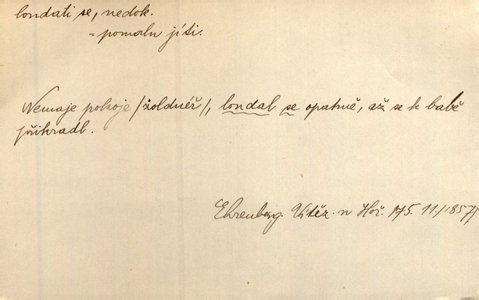 londati se, nedok.
= pomalu jíti.
Nemaje pokoje /žoldnéř/, londal se opatrně, až se k babě
přikradl.
Ehrenberg. Vítěz. n Hoř. 175. 11./1857/